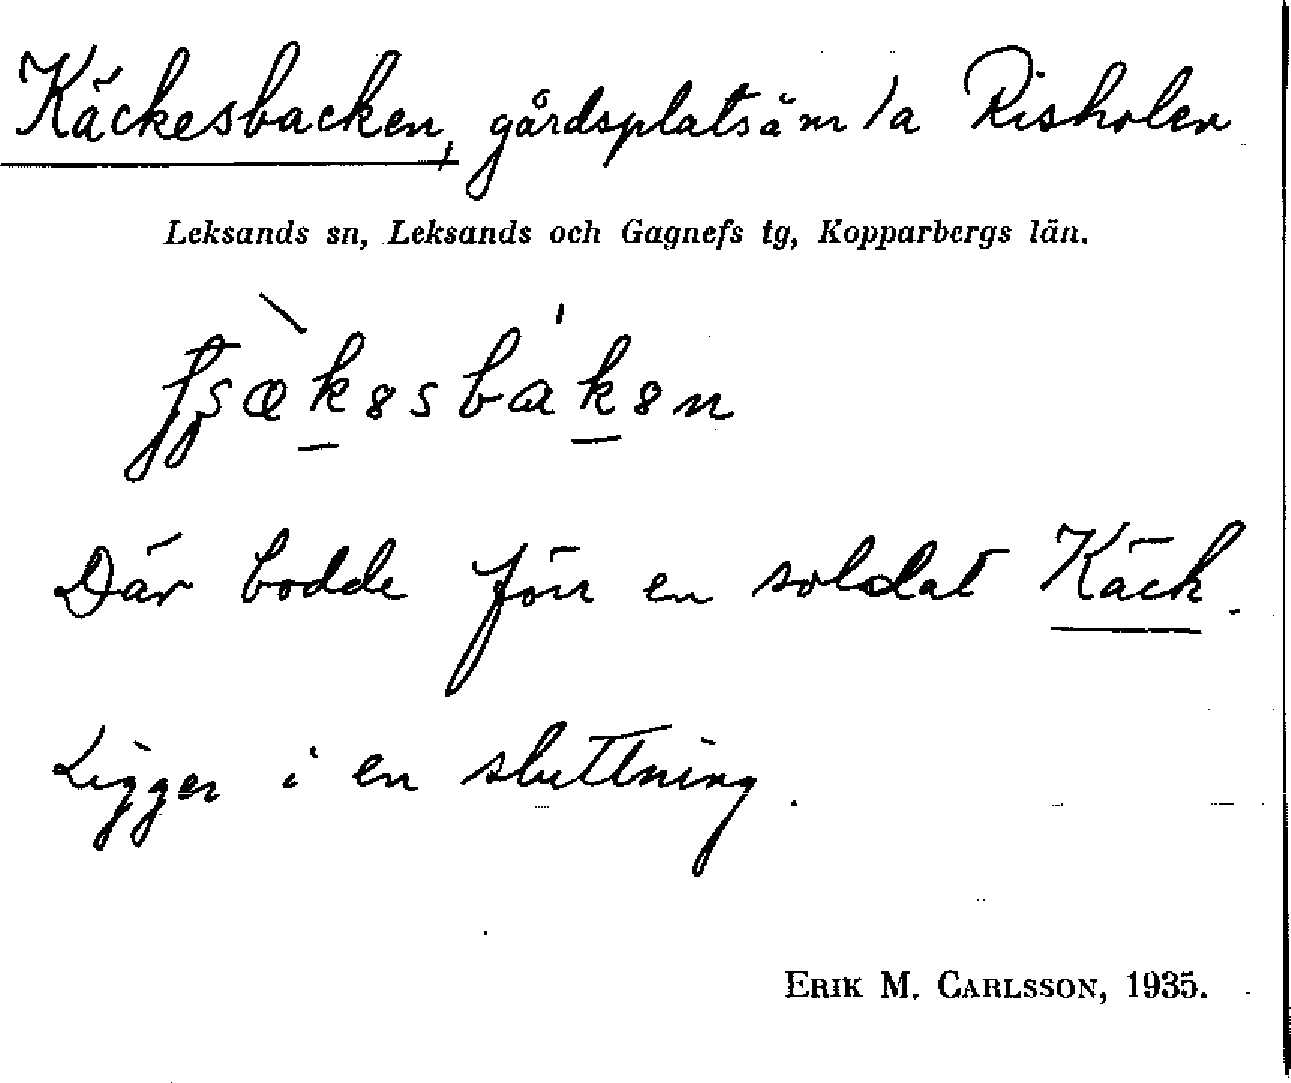 Käckesbacken, gårdsplatsämla Risholen
Leksands sn, Leksands och Gagnefs tg, Kopparbergs län.
Där bodde förr en soldat Käck.
Ligger i en sluttning.
ERIK M. CARLSSON, 1935.